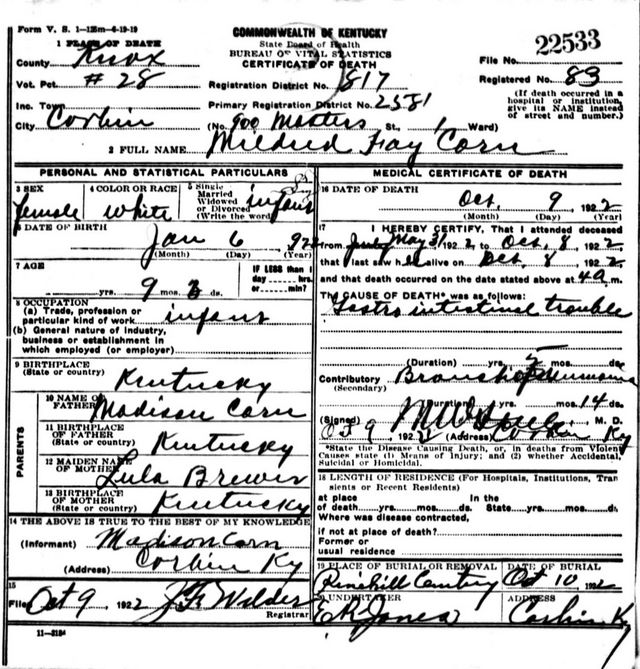 Form V. S. 1—125m—4-19-19
COMMONWEALTH OF KENTUCKY
State Board of Health
BUREAU OF VITAL STATISTICS
CERTIFICATE OF DEATH
1 PLACE OF DEATH
County Knox
File No. 22533
Vot. Pct. # 28
Registration District No. 817
Registered No. 83
Inc. Town
Primary Registration District No. 2581
(If death occurred in a hospital or institution, give its NAME instead of street and number.)
City Corbin
(No. 900 Masters St., 1 Ward)
2 FULL NAME Mildred Fay Corn
PERSONAL AND STATISTICAL PARTICULARS
3 SEX female
4 COLOR OR RACE White
5 Single Married Widowed or Divorced (Write the word) infant
6 DATE OF BIRTH
Jan 6 1922
(Month) (Day) (Year)
7 AGE
IF LESS than 1 day......hrs. or......min?
yrs. 9 mos. 3 ds.
8 OCCUPATION
(a) Trade, profession or particular kind of work infant
(b) General nature of industry, business or establishment in which employed (or employer)
9 BIRTHPLACE (State or country) Kentucky
PARENTS
10 NAME OF FATHER Madison Corn
11 BIRTHPLACE OF FATHER (State or country) Kentucky
12 MAIDEN NAME OF MOTHER Lula Brewer
13 BIRTHPLACE OF MOTHER (State or country) Kentucky
14 THE ABOVE IS TRUE TO THE BEST OF MY KNOWLEDGE
(Informant) Madison Corn
(Address) Corbin Ky
15
Filed Oct 9 1922 J F Wilder
Registrar
11—3184
MEDICAL CERTIFICATE OF DEATH
16 DATE OF DEATH
Oct. 9 1922
(Month) (Day) (Year)
17 I HEREBY CERTIFY, That I attended deceased
from May 31 1922 to Oct. 8 1922
that I last saw h alive on Oct. 8 1922
and that death occurred on the date stated above at 4 a m.
The CAUSE OF DEATH* was as follows:
Gastro intestinal trouble
(Duration) yrs. 5 mos. ds.
Contributory Broncho Pneumonia
(Secondary)
(Duration) yrs. mos. 14 ds.
(Signed) M. D.
Oct 9 1922 (Address) Corbin Ky
*State the Disease Causing Death, or, in deaths from Violent Causes state (1) Means of Injury; and (2) whether Accidental, Suicidal or Homicidal.
18 LENGTH OF RESIDENCE (For Hospitals, Institutions, Transients or Recent Residents)
at place of death......yrs......mos......ds. In the State......yrs......mos......ds.
Where was disease contracted,
if not at place of death?
Former or usual residence
19 PLACE OF BURIAL OR REMOVAL
DATE OF BURIAL
Pinehill Cemetery Oct 10 1922
20 UNDERTAKER
ADDRESS
E R Jones Corbin Ky